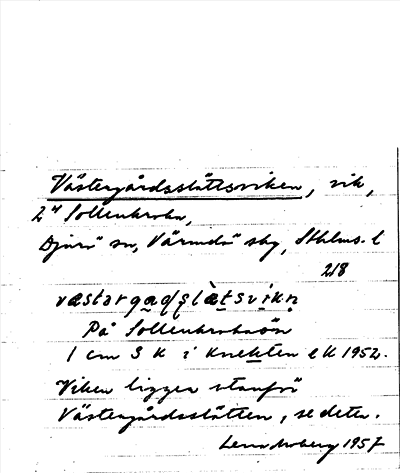 Västergårdsslättsviken, vik,
2" Sollenkroka,
Djurö sn, Värmdö skg, Sthlms. l
218
På Sollenkrokaön
1 cm S k i Knekten ek 1952.
Viken ligger utanför
Västergårdsslätten, se detta.
Lena Moberg 1957